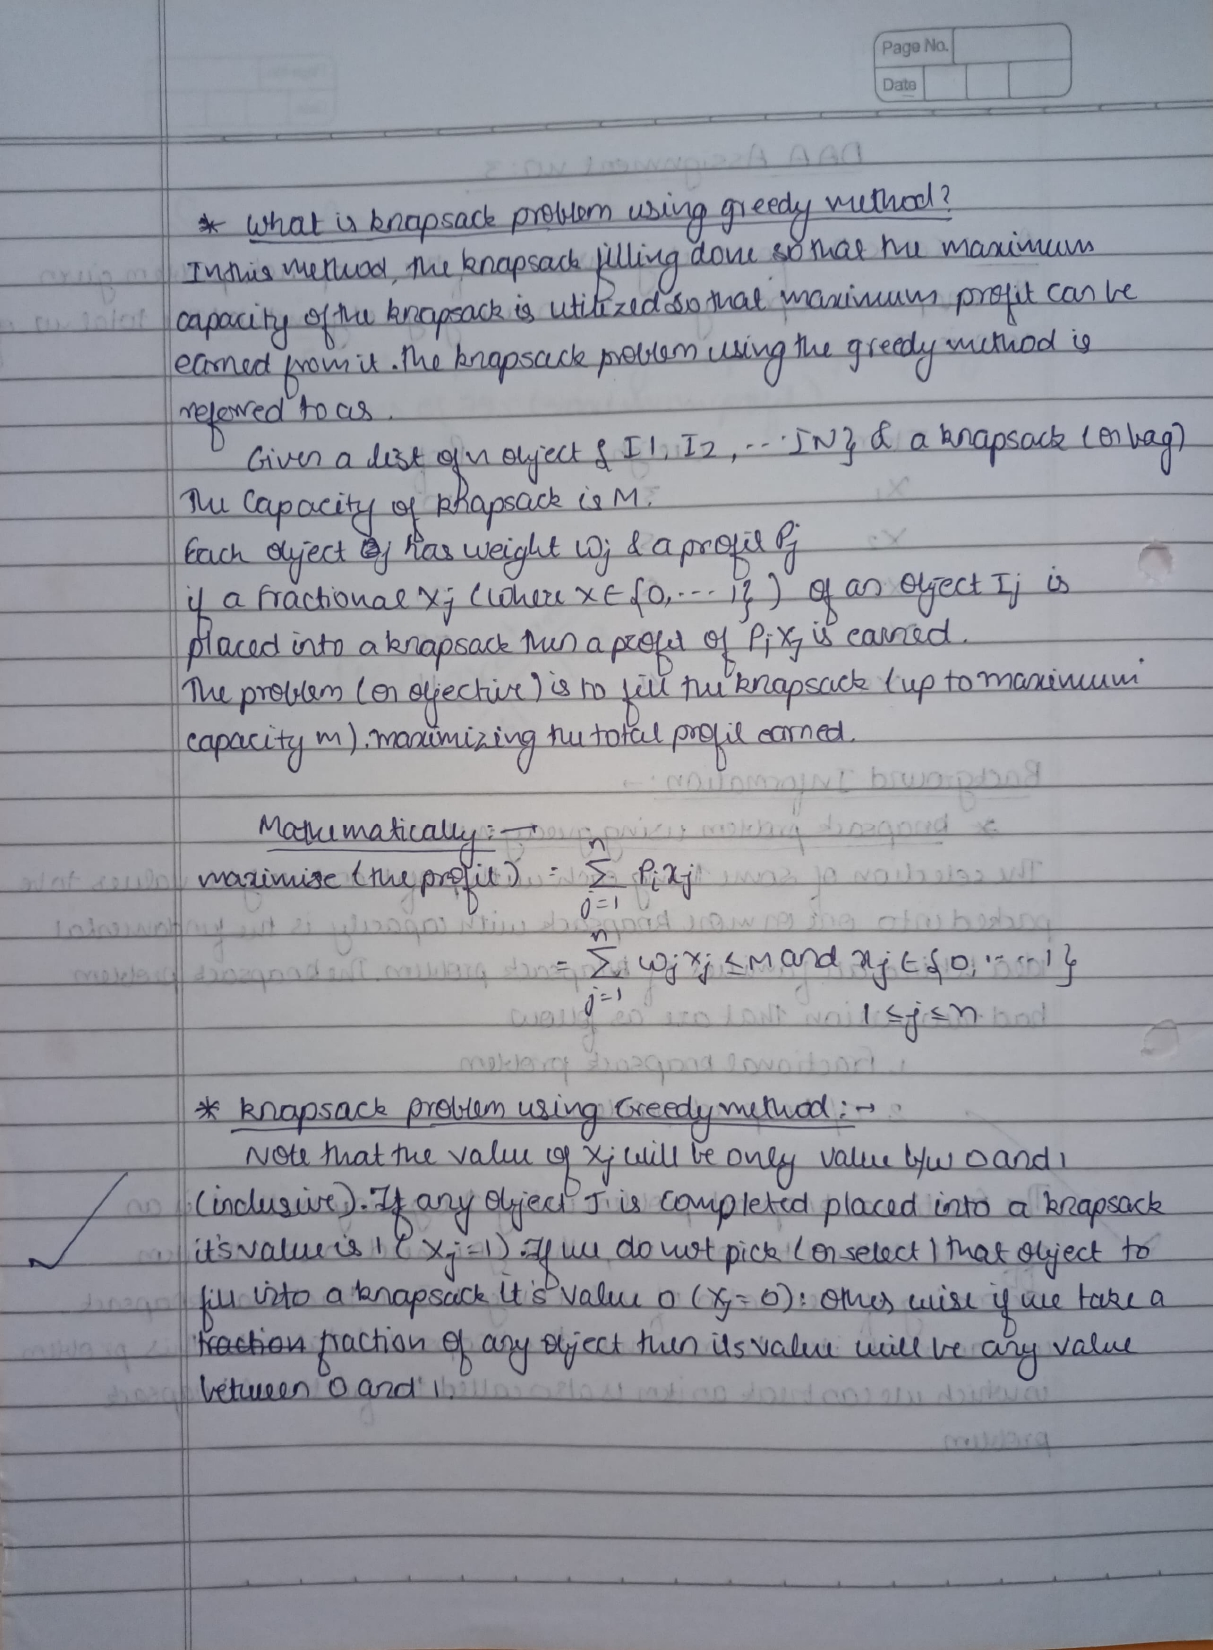 Page No.
Date
* What is knapsack problem using greedy method?
In this method, the knapsack filling done so that the maximum
capacity of the knapsack is utilized so that maximum profit can be
earned from it. The knapsack problem using the greedy method is
referred to as.
Given a list of n object { I1, I2, --- IN} & a knapsack (or bag)
The capacity of knapsack is M.
Each object j has weight wj & a profit Pj
if a fractional xj (where x ∈ {0, --- 1} ) of an object Ij is
placed into a knapsack then a profit of Pj xj is earned.
The problem (or objective) is to fill the knapsack (up to maximum
capacity m). maximizing the total profit earned.
Mathematically :→
maximise (the profit) = n Σ j=1 Pi xj
= n Σ j=1 wj xj ≤ M and xj ∈ { 0, --- 1 }
1 ≤ j ≤ n
* knapsack problem using Greedy method :→
Note that the value of xj will be only value b/w 0 and 1
(inclusive). If any object J is completed placed into a knapsack
it's value is 1 ( xj = 1 ). If we do not pick (or select) that object to
fill into a knapsack it's value 0 (xj = 0). Other wise if we take a
fraction fraction of any object then its value will be any value
between 0 and 1.